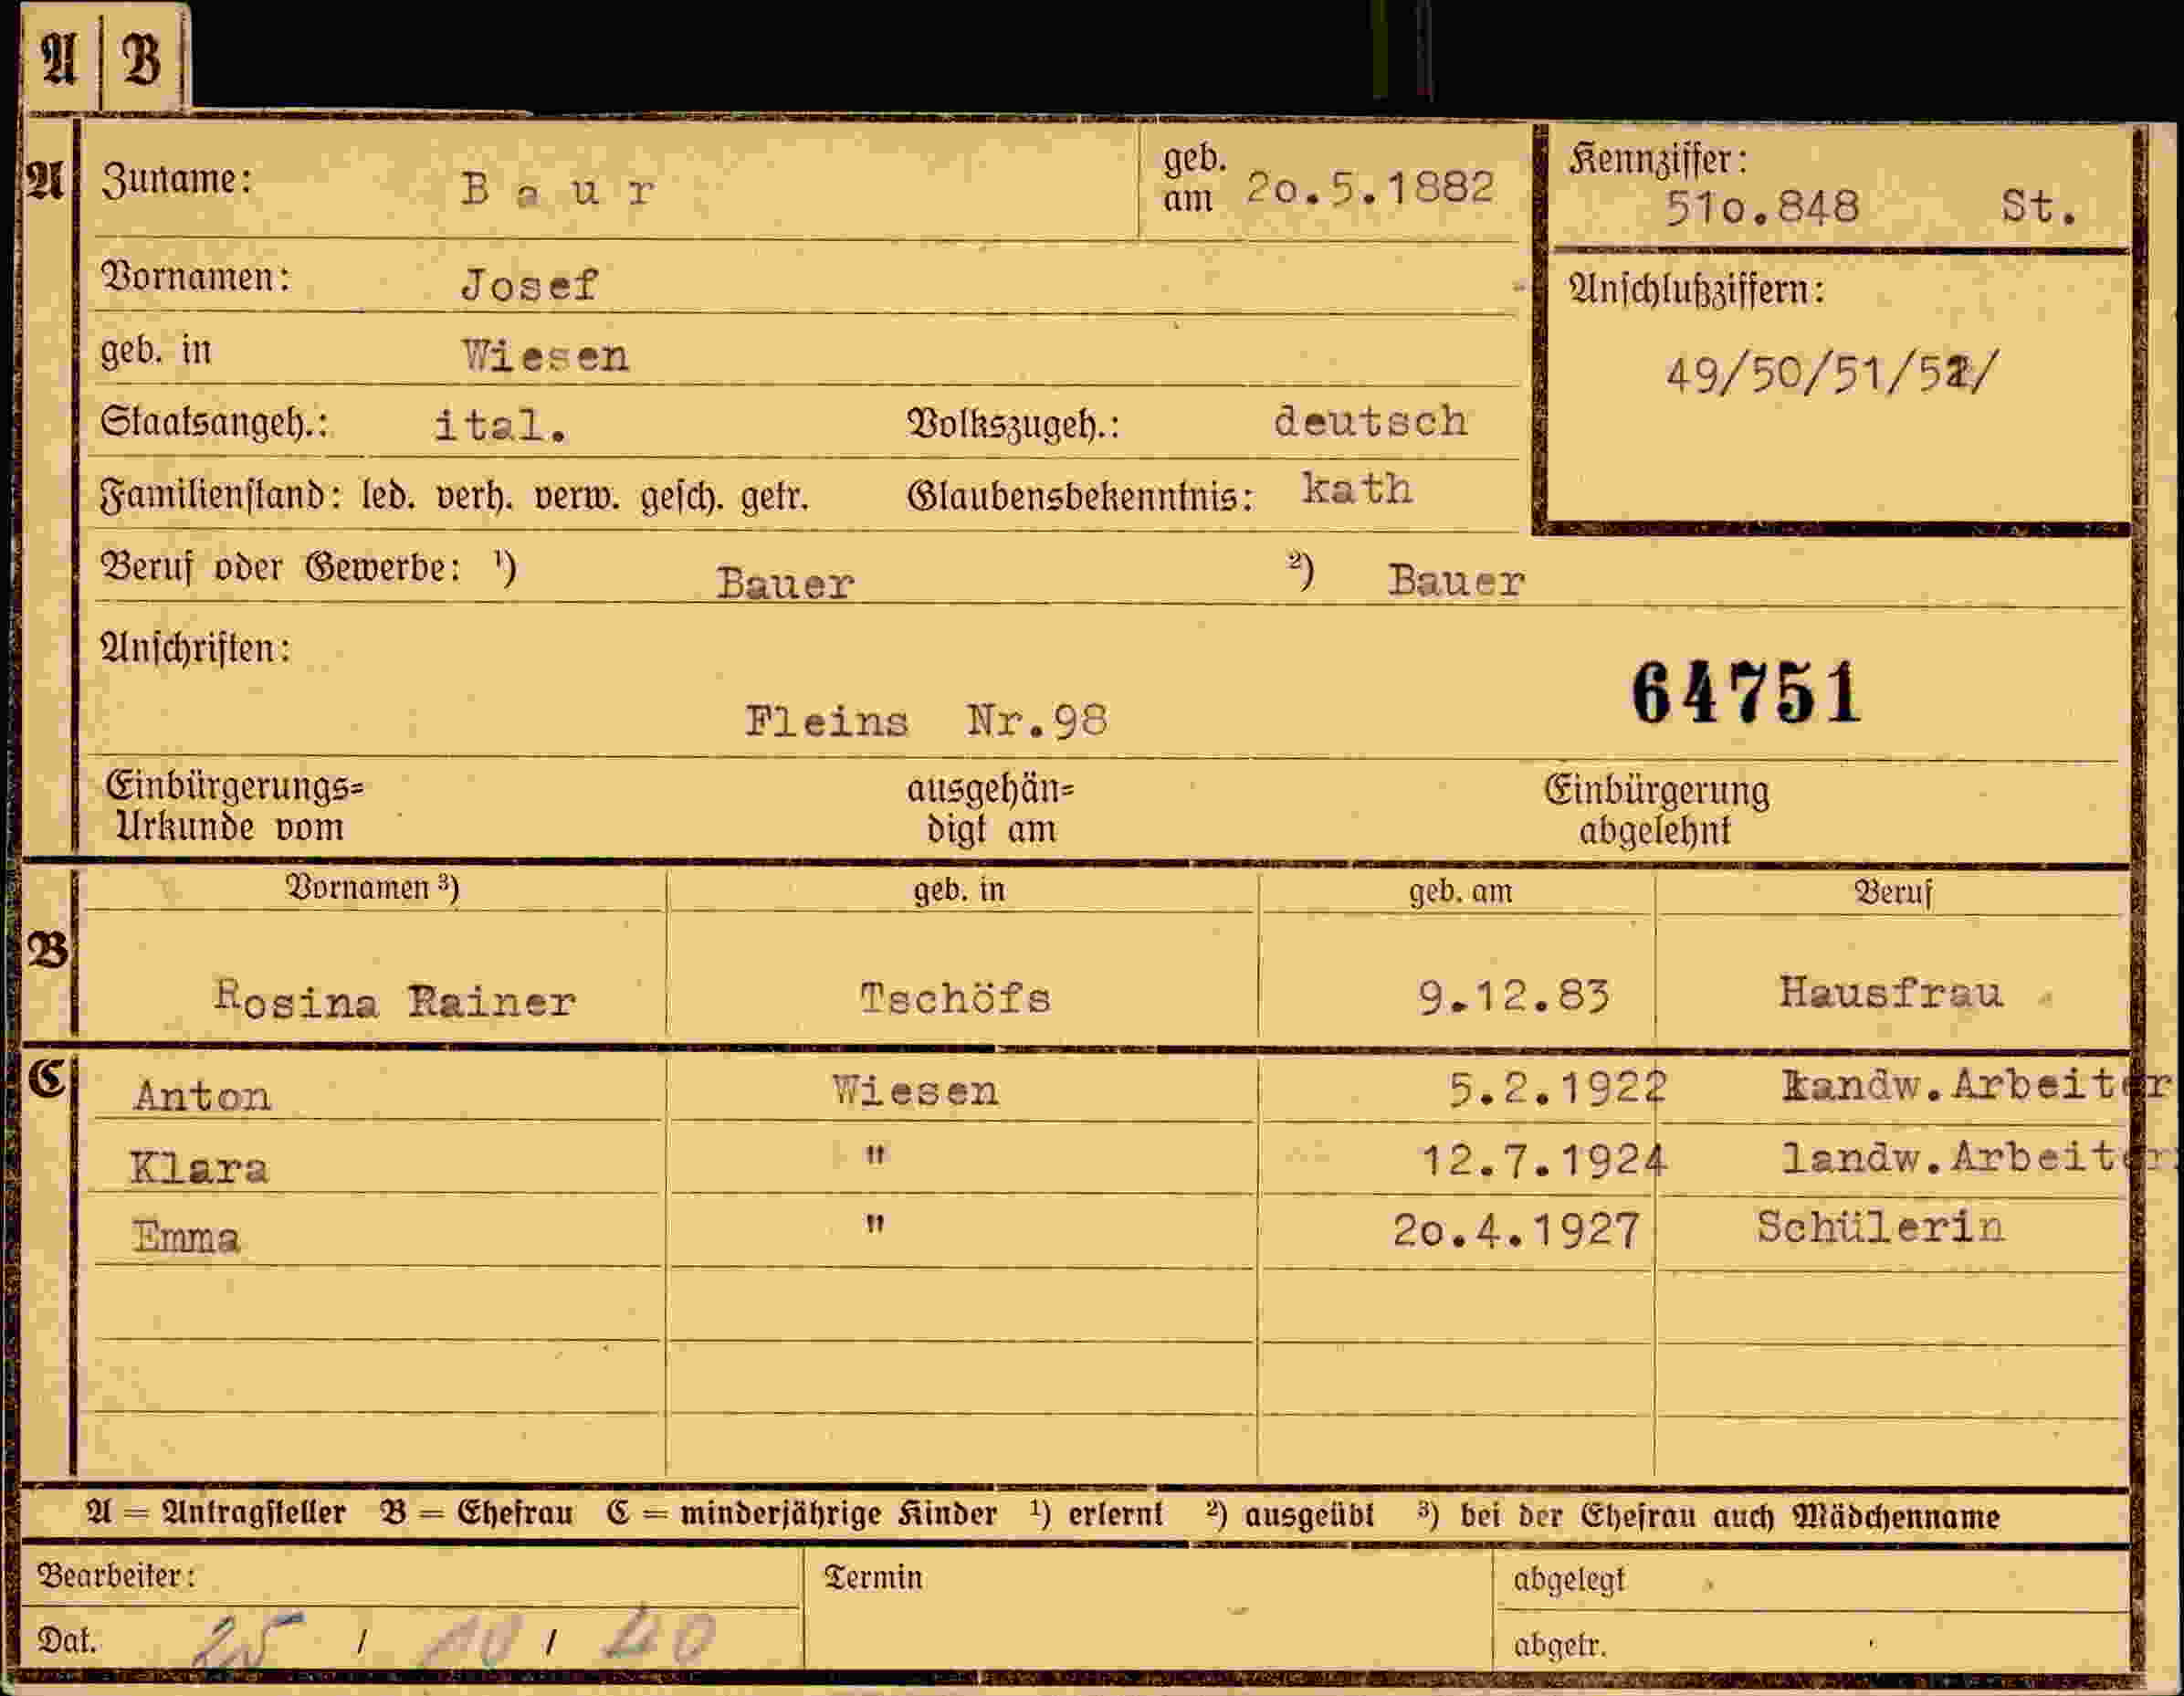 A B
A Zuname: Baur geb. am 20.5.1882 Kennziffer: 510.848 St.
Vornamen: Josef Anschlußziffern:
geb. in Wiesen 49/50/51/52/
Staatsangeh.: ital. Volkszugeh.: deutsch
Familienstand: led. verh. verw. gesch. getr. Glaubensbekenntnis: kath
Beruf oder Gewerbe: ¹) Bauer ²) Bauer
Anschriften:
Fleins Nr.98 64751
Einbürgerungs= Urkunde vom ausgehän= digt am Einbürgerung abgelehnt
Vornamen ³) geb. in geb. am Beruf
B Rosina Rainer Tschöfs 9.12.83 Hausfrau
C Anton Wiesen 5.2.1922 landw.Arbeiter
Klara " 12.7.1924 landw.Arbeiter
Emma " 20.4.1927 Schülerin
A = Antragsteller B = Ehefrau C = minderjährige Kinder ¹) erlernt ²) ausgeübt ³) bei der Ehefrau auch Mädchenname
Bearbeiter: Termin abgelegt
Dat. 25 / 10 / 40 abgetr.